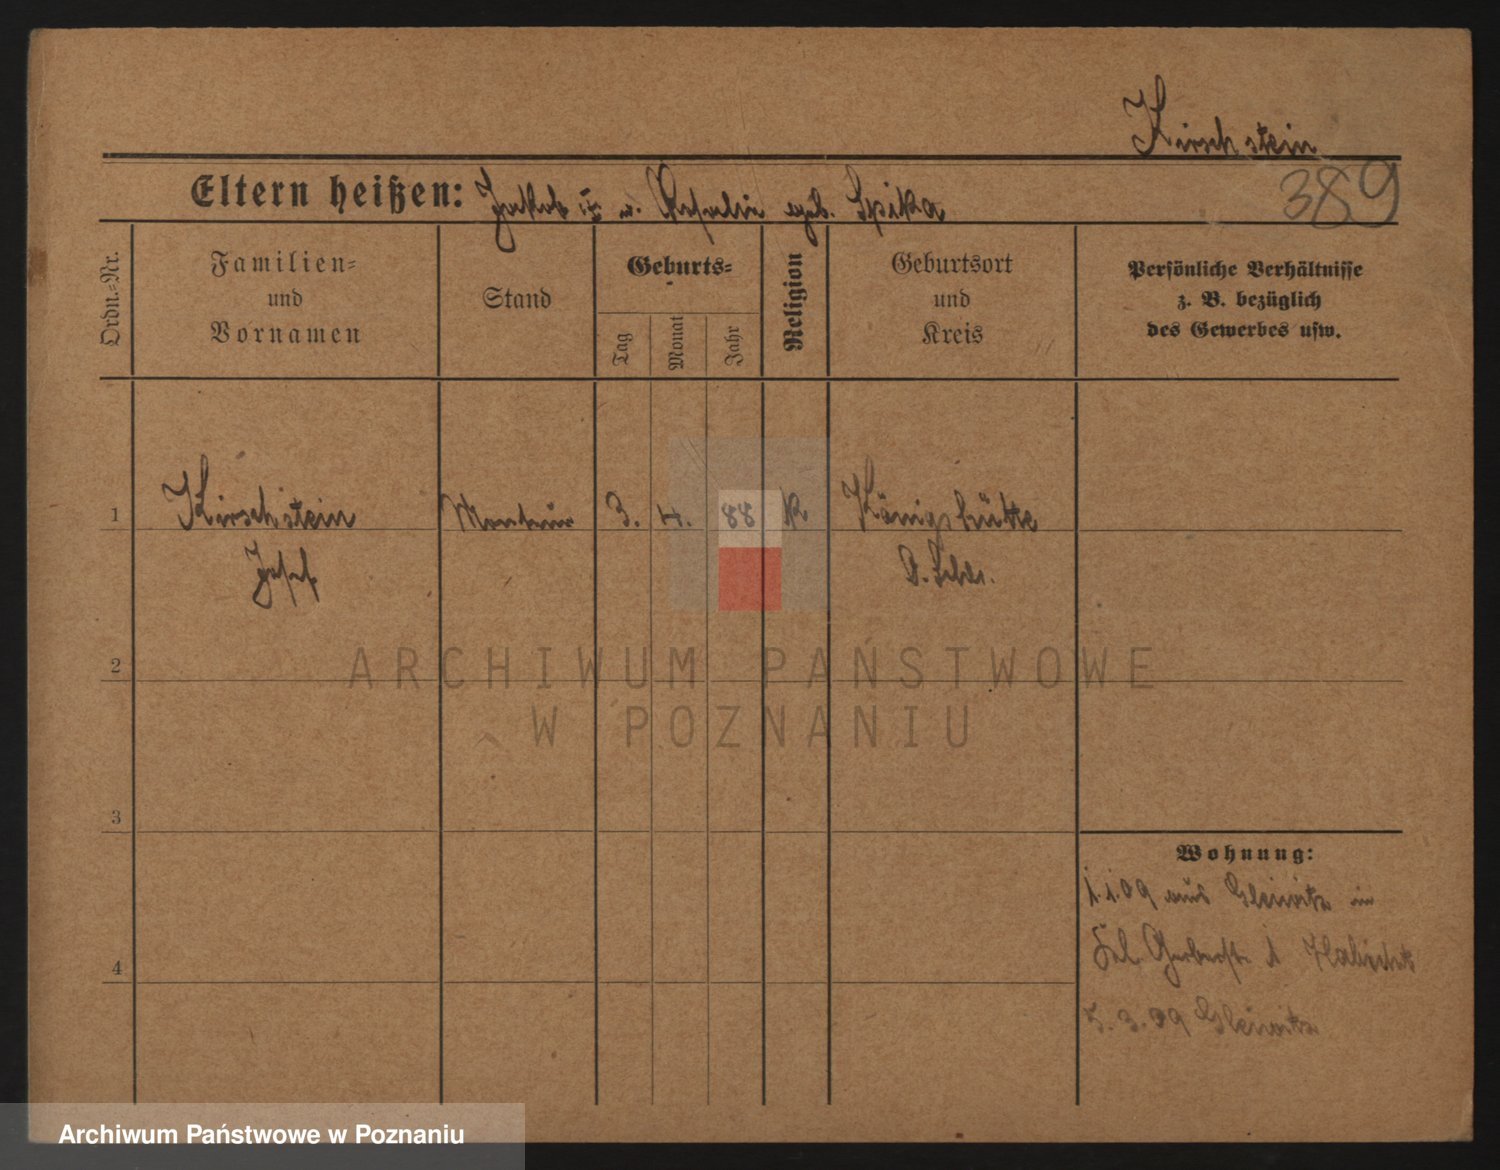 Kirschstein
389
Eltern heißen: Jakob u. Rosalie geb. Spika
Ordn.-Nr.
Familien-
und
Vornamen
Stand
Geburts-
Tag
Monat
Jahr
Religion
Geburtsort
und
Kreis
Persönliche Verhältnisse
z. B. bezüglich
des Gewerbes usw.
1
Kirschstein
Josef
Monteur
3.
4.
88
K
Königshütte
O. Schles.
2
3
4
Wohnung:
1.1.09 aus Gleiwitz in
Gerberstr. 1
5.3.09 Gleiwitz
ARCHIWUM PAŃSTWOWE
W POZNANIU
Archiwum Państwowe w Poznaniu